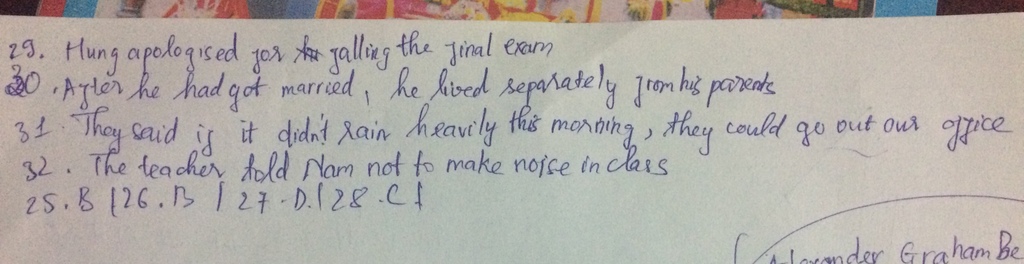 29. Hung apologised for falling the final exam
30. After he had got married, he lived separately from his parents
31. They said if it didn't rain heavily this morning, they could go out our office
32. The teacher told Nam not to make noise in class
25. B | 26. B | 27 - D. | 28. C |
Alexander Graham Be